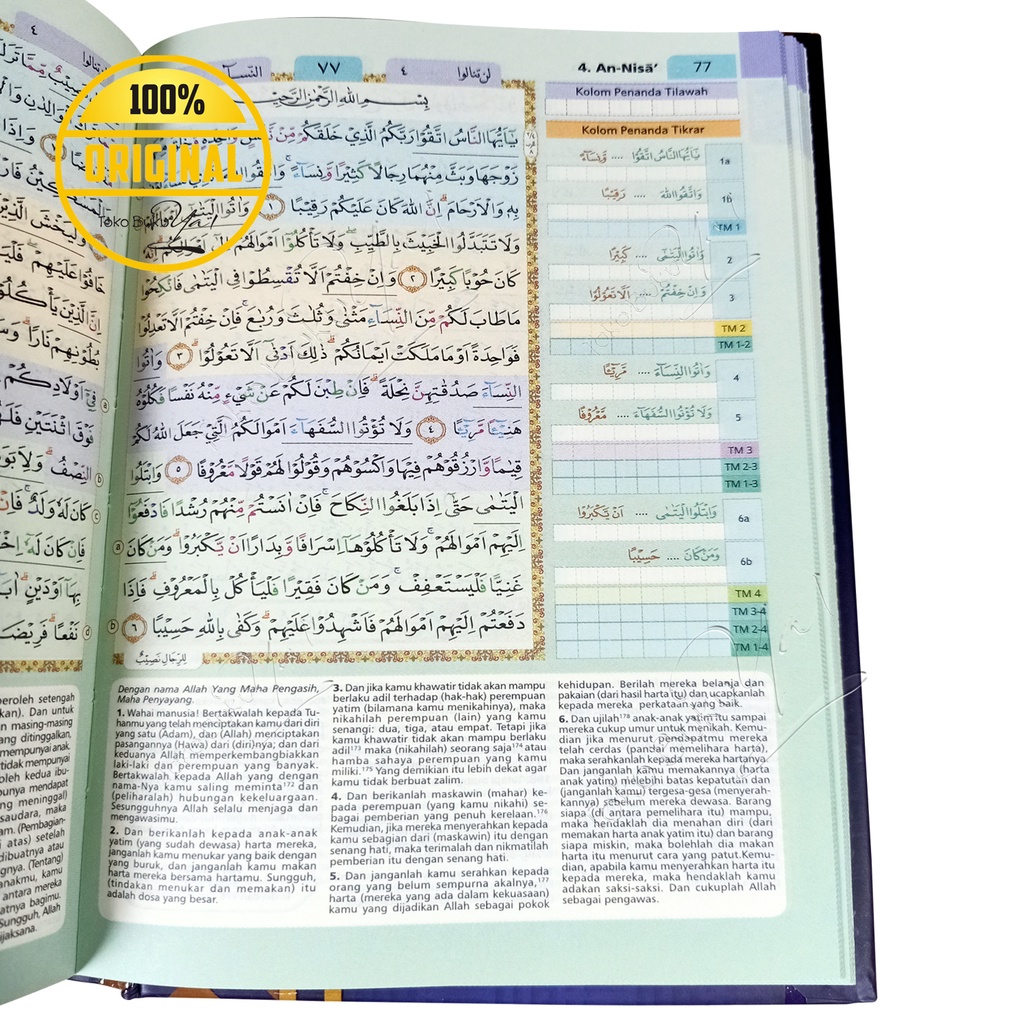 ٤
النسآء
٧٧
٤
لن تنالوا
4. An-Nisā' 77
بِسْمِ اللّٰهِ الرَّحْمٰنِ الرَّحِيْمِ
يٰٓاَيُّهَا النَّاسُ اتَّقُوْا رَبَّكُمُ الَّذِيْ خَلَقَكُمْ مِّنْ نَّفْسٍ وَّاحِدَةٍ
زَوْجَهَا وَبَثَّ مِنْهُمَا رِجَالًا كَثِيْرًا وَّنِسَاۤءً ۚ وَاتَّقُوا
بِهٖ وَالْاَرْحَامَ ۗ اِنَّ اللّٰهَ كَانَ عَلَيْكُمْ رَقِيْبًا ١ وَاٰتُوا الْيَتٰمٰٓى اَمْوَالَهُمْ
وَلَا تَتَبَدَّلُوا الْخَبِيْثَ بِالطَّيِّبِ ۖ وَلَا تَأْكُلُوْٓا اَمْوَالَهُمْ اِلٰٓى اَمْوَالِكُمْ ۗ اِنَّهٗ
كَانَ حُوْبًا كَبِيْرًا ٢ وَاِنْ خِفْتُمْ اَلَّا تُقْسِطُوْا فِى الْيَتٰمٰى فَانْكِحُوْا
مَا طَابَ لَكُمْ مِّنَ النِّسَاۤءِ مَثْنٰى وَثُلٰثَ وَرُبٰعَ ۚ فَاِنْ خِفْتُمْ اَلَّا تَعْدِلُوْا
فَوَاحِدَةً اَوْ مَا مَلَكَتْ اَيْمَانُكُمْ ۗ ذٰلِكَ اَدْنٰٓى اَلَّا تَعُوْلُوْا ٣ وَاٰتُوا
النِّسَاۤءَ صَدُقٰتِهِنَّ نِحْلَةً ۗ فَاِنْ طِبْنَ لَكُمْ عَنْ شَيْءٍ مِّنْهُ نَفْسًا فَكُلُوْهُ
هَنِيْۤـًٔا مَّرِيْۤـًٔا ٤ وَلَا تُؤْتُوا السُّفَهَاۤءَ اَمْوَالَكُمُ الَّتِيْ جَعَلَ اللّٰهُ لَكُمْ
قِيٰمًا وَّارْزُقُوْهُمْ فِيْهَا وَاكْسُوْهُمْ وَقُوْلُوْا لَهُمْ قَوْلًا مَّعْرُوْفًا ٥ وَابْتَلُوا
الْيَتٰمٰى حَتّٰىٓ اِذَا بَلَغُوا النِّكَاحَ ۚ فَاِنْ اٰنَسْتُمْ مِّنْهُمْ رُشْدًا فَادْفَعُوْٓا
اِلَيْهِمْ اَمْوَالَهُمْ ۚ وَلَا تَأْكُلُوْهَآ اِسْرَافًا وَّبِدَارًا اَنْ يَّكْبَرُوْا ۗ وَمَنْ كَانَ
غَنِيًّا فَلْيَسْتَعْفِفْ ۚ وَمَنْ كَانَ فَقِيْرًا فَلْيَأْكُلْ بِالْمَعْرُوْفِ ۗ فَاِذَا
دَفَعْتُمْ اِلَيْهِمْ اَمْوَالَهُمْ فَاَشْهِدُوْا عَلَيْهِمْ ۗ وَكَفٰى بِاللّٰهِ حَسِيْبًا ٦
لِلرِّجَالِ نَصِيْبٌ
Kolom Penanda Tilawah
Kolom Penanda Tikrar
يٰٓاَيُّهَا النَّاسُ اتَّقُوْا .... وَّنِسَاۤءً 1a
وَاتَّقُوا اللّٰهَ .... رَقِيْبًا 1b
TM 1
وَاٰتُوا الْيَتٰمٰٓى .... كَبِيْرًا 2
وَاِنْ خِفْتُمْ .... اَلَّا تَعُوْلُوْا 3
TM 2
TM 1-2
وَاٰتُوا النِّسَاۤءَ .... مَّرِيْۤـًٔا 4
وَلَا تُؤْتُوا السُّفَهَاۤءَ .... مَّعْرُوْفًا 5
TM 3
TM 2-3
TM 1-3
وَابْتَلُوا الْيَتٰمٰى .... اَنْ يَّكْبَرُوْا 6a
وَمَنْ كَانَ .... حَسِيْبًا 6b
TM 4
TM 3-4
TM 2-4
TM 1-4
100%
ORIGINAL
Toko Buku
Dengan nama Allah Yang Maha Pengasih,
Maha Penyayang.
1. Wahai manusia! Bertakwalah kepada Tu-
hanmu yang telah menciptakan kamu dari diri
yang satu (Adam), dan (Allah) menciptakan
pasangannya (Hawa) dari (diri)nya; dan dari
keduanya Allah memperkembangbiakkan
laki-laki dan perempuan yang banyak.
Bertakwalah kepada Allah yang dengan
nama-Nya kamu saling meminta¹⁷² dan
(peliharalah) hubungan kekeluargaan.
Sesungguhnya Allah selalu menjaga dan
mengawasimu.
2. Dan berikanlah kepada anak-anak
yatim (yang sudah dewasa) harta mereka,
janganlah kamu menukar yang baik dengan
yang buruk, dan janganlah kamu makan
harta mereka bersama hartamu. Sungguh,
(tindakan menukar dan memakan) itu
adalah dosa yang besar.
3. Dan jika kamu khawatir tidak akan mampu
berlaku adil terhadap (hak-hak) perempuan
yatim (bilamana kamu menikahinya), maka
nikahilah perempuan (lain) yang kamu
senangi: dua, tiga, atau empat. Tetapi jika
kamu khawatir tidak akan mampu berlaku
adil¹⁷³ maka (nikahilah) seorang saja¹⁷⁴ atau
hamba sahaya perempuan yang kamu
miliki.¹⁷⁵ Yang demikian itu lebih dekat agar
kamu tidak berbuat zalim.
4. Dan berikanlah maskawin (mahar) ke-
pada perempuan (yang kamu nikahi) se-
bagai pemberian yang penuh kerelaan.¹⁷⁶
Kemudian, jika mereka menyerahkan kepada
kamu sebagian dari (maskawin) itu dengan
senang hati, maka terimalah dan nikmatilah
pemberian itu dengan senang hati.
5. Dan janganlah kamu serahkan kepada
orang yang belum sempurna akalnya,¹⁷⁷
harta (mereka yang ada dalam kekuasaan)
kamu yang dijadikan Allah sebagai pokok
kehidupan. Berilah mereka belanja dan
pakaian (dari hasil harta itu) dan ucapkanlah
kepada mereka perkataan yang baik.
6. Dan ujilah¹⁷⁸ anak-anak yatim itu sampai
mereka cukup umur untuk menikah. Kemu-
dian jika menurut pendapatmu mereka
telah cerdas (pandai memelihara harta),
maka serahkanlah kepada mereka hartanya.
Dan janganlah kamu memakannya (harta
anak yatim) melebihi batas kepatutan dan
(janganlah kamu) tergesa-gesa (menyerah-
kannya) sebelum mereka dewasa. Barang
siapa (di antara pemelihara itu) mampu,
maka hendaklah dia menahan diri (dari
memakan harta anak yatim itu) dan barang
siapa miskin, maka bolehlah dia makan
harta itu menurut cara yang patut. Kemu-
dian, apabila kamu menyerahkan harta itu
kepada mereka, maka hendaklah kamu
adakan saksi-saksi. Dan cukuplah Allah
sebagai pengawas.